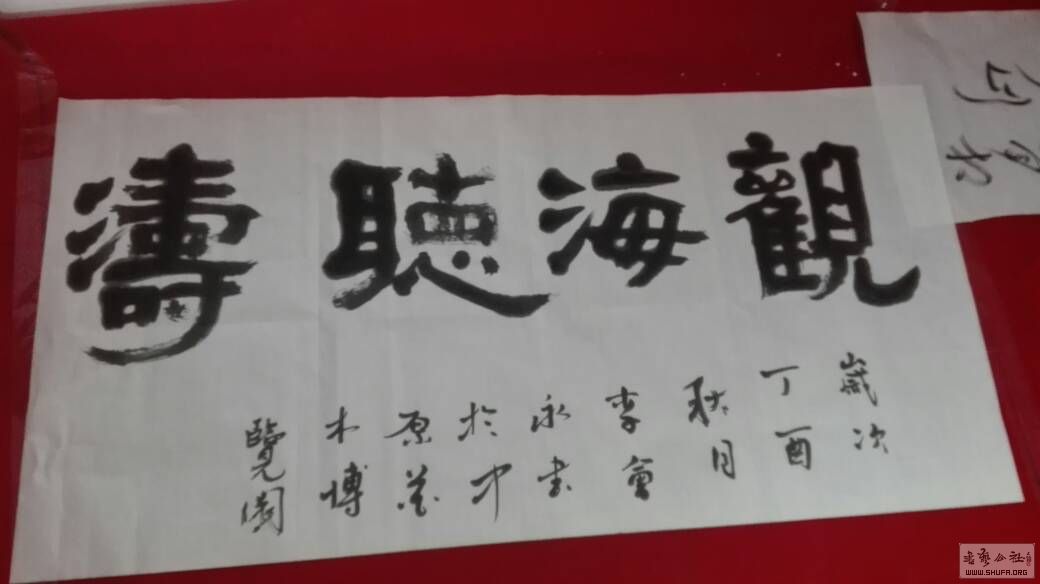 觀海聽濤
歲次
丁酉
秋月
李會
永书
於中
原花
木博
覽園
书艺公社
WWW.SHUFA.ORG